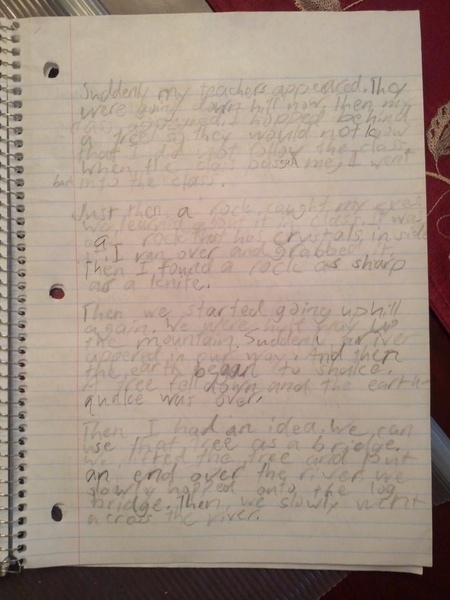 Suddenly my teachers appeared. They
were going down hill now. Then my
class appeared. I hopped behind
a tree so they would not know
that I did not follow the class.
When the class passed me, I went
back into the class.
Just then a rock caught my eyes.
We learned about it in class. It was
a rock that had crystals in side
it. I ran over and grabbed it.
Then I found a rock as sharp
as a knife.
Then we started going up hill
again. We were half way up
the mountain. Suddenly a river
appered in our way. And then
the earth began to shake.
A tree fell down and the earth
quake was over.
Then I had an idea. We can
use that tree as a bridge.
We lifted the tree and put
an end over the river. We
slowly hopped onto the log
bridge. Then, we slowly went
across the river.